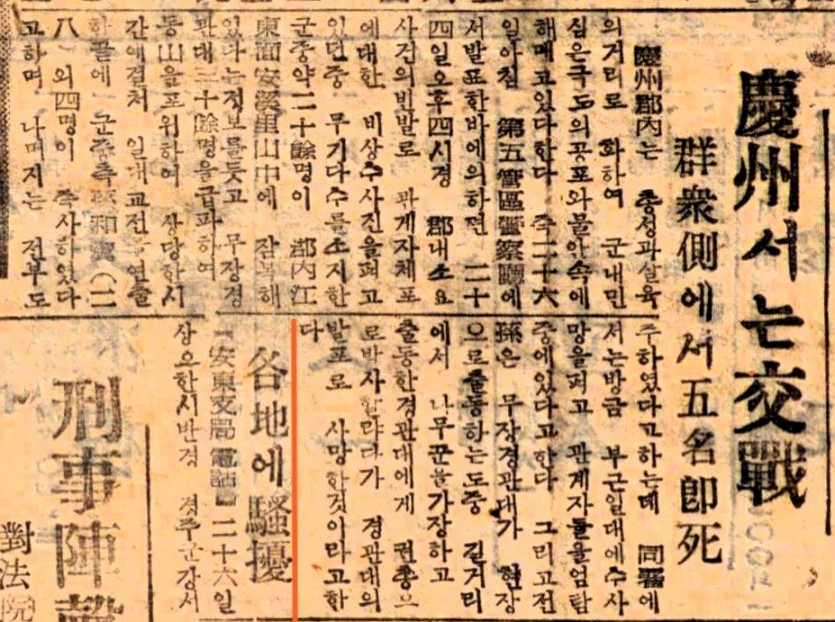 慶州서는交戰
群衆側에서五名即死
慶州郡內는 총성과살육
의거리로 화하여 군내민
심은극도의공포와불안속에
해매고있다한다 즉二十六
일아침 第五管區警察廳에
서발표한바에의하면 二十
四일오후四시경 郡내소요
사건의빈발로 관계자체포
에대한 비상수사진을펴고
있던중 무기다수를소지한
군중약二十餘명이 郡內江
東面安溪里山中에 잠복해
있다는정보를듯고 무장경
관대三十餘명을급파하여
동山을포위하여 상당한시
간에걸처 일대교전을연출
한끝에 군중측 (二
八 외四명이 즉사하였다
고하며 나머지는 전부도
주하였다고하는데 同署에
서는방금 부근일대에수사
망을펴고 관계자들을엄탐
중에있다고한다 그리고전
孫은 무장경관대가 현장
으로출동하는도중 길거리
에서 나무꾼을가장하고
출동한경관대에게 권총으
로박사할랴다가 경관대의
발포로 사망한것이라고한
다
各地에騷擾
【安東支局電話】二十六일
상오한시반경 경주군강서
刑事陣
對法院